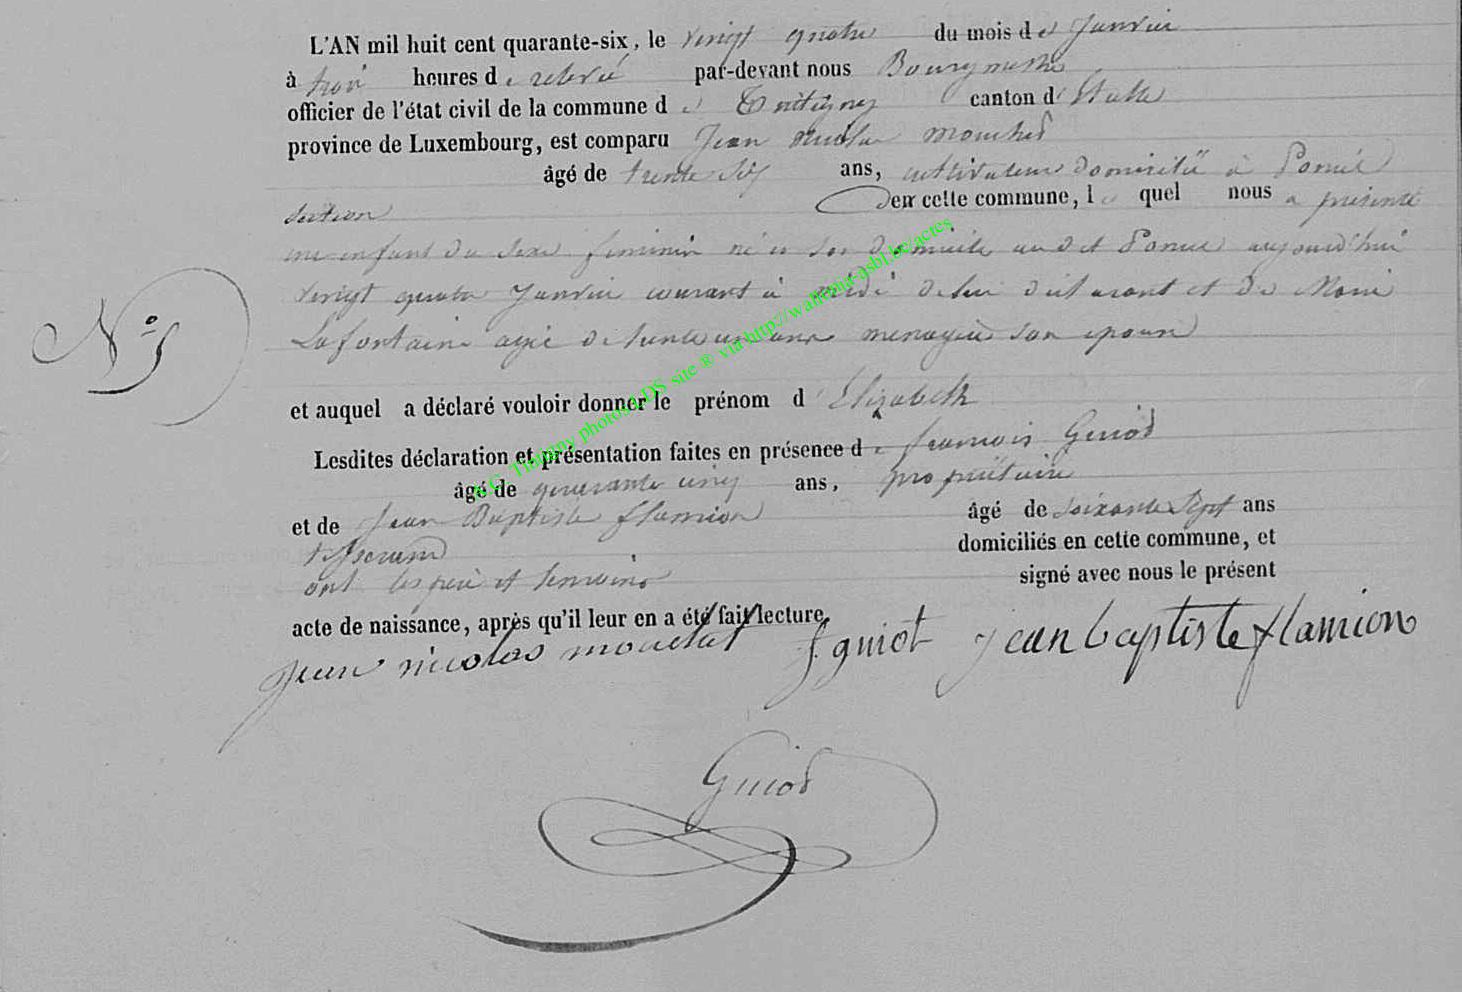 L'AN mil huit cent quarante-six, le vingt quatre du mois de Janvier
à trois heures de relevé par-devant nous Bourgmestre
officier de l'état civil de la commune de Tintigny canton d'Etalle
province de Luxembourg, est comparu Jean nicolas mouchet
âgé de trente six ans, cultivateur domicilié à
section en cette commune, lequel nous a présenté
un enfant du sexe feminin né en son domicile audit aujourd'hui
vingt quatre Janvier courant à midi de lui déclarant et de Marie
Lafontaine agée de trente un ans menagère son epouse
N° 5
et auquel a déclaré vouloir donner le prénom d'Elizabeth
Lesdites déclaration et présentation faites en présence de francois Guiot
âgé de quarante cinq ans, propriétaire
et de Jean Baptiste flamion âgé de soixante sept ans
tisserand domiciliés en cette commune, et
ont les père et temoins signé avec nous le présent
acte de naissance, après qu'il leur en a été fait lecture
Jean nicolas mouchet f guiot jean baptiste flamion
Guiot
A.C. Tintigny photos ADS site ® via http://wallonia-asbl.be/actes